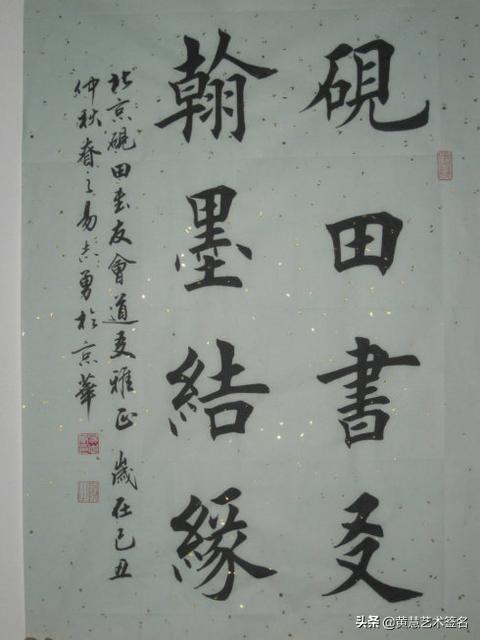 硯田書友
翰墨結緣
北京硯田书友會道友雅正 歲在己丑
仲秋春之易志勇於京華
头条 @黄慧艺术签名